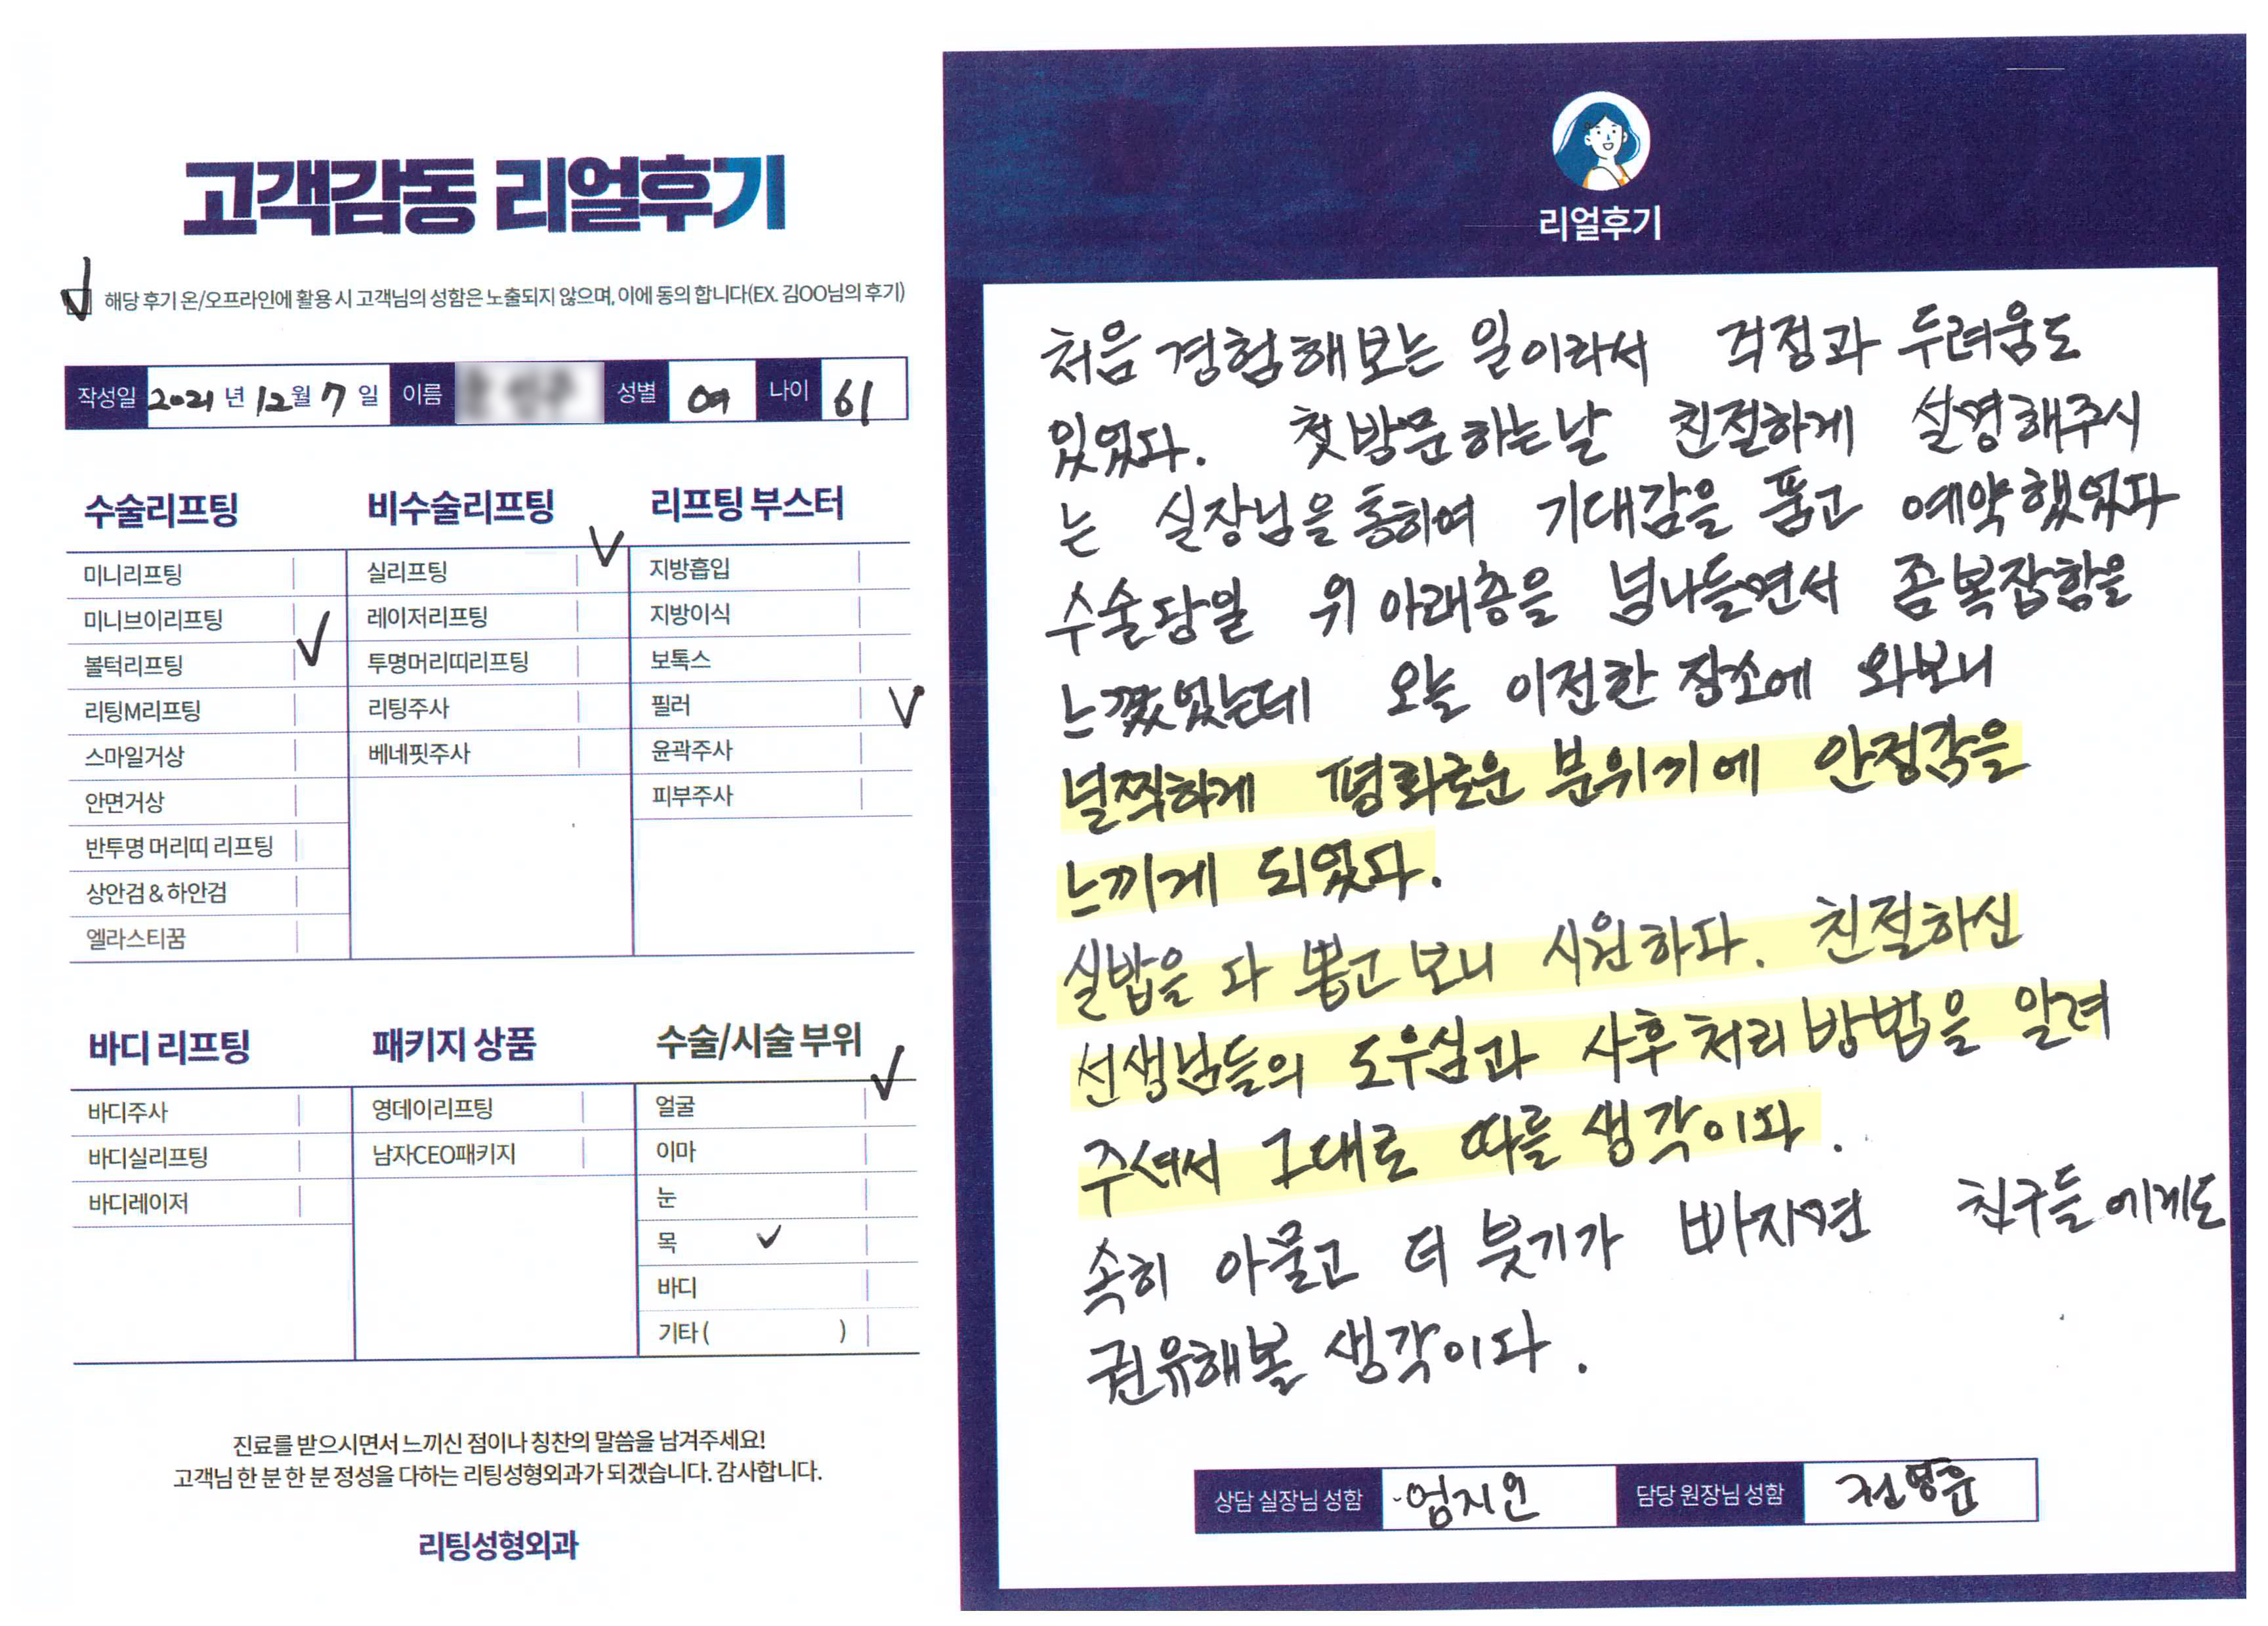 고객감동 리얼후기
해당 후기 온/오프라인에 활용 시 고객님의 성함은 노출되지 않으며, 이에 동의 합니다(EX. 김OO님의 후기)
작성일 2021 년 12 월 7 일 이름 성별 여 나이 61
수술리프팅
미니리프팅
미니브이리프팅
볼턱리프팅
리팅M리프팅
스마일거상
안면거상
반투명 머리띠 리프팅
상안검 & 하안검
엘라스티꿈
비수술리프팅
실리프팅
레이저리프팅
투명머리띠리프팅
리팅주사
베네핏주사
리프팅 부스터
지방흡입
지방이식
보톡스
필러
윤곽주사
피부주사
바디 리프팅
바디주사
바디실리프팅
바디레이저
패키지 상품
영데이리프팅
남자CEO패키지
수술/시술 부위
얼굴
이마
눈
목
바디
기타 ( )
진료를 받으시면서 느끼신 점이나 칭찬의 말씀을 남겨주세요!
고객님 한 분 한 분 정성을 다하는 리팅성형외과가 되겠습니다. 감사합니다.
리팅성형외과
리얼후기
처음 경험해보는 일이라서 걱정과 두려움도
있었다. 첫방문하는날 친절하게 설명해주시
는 실장님을 통하여 기대감을 품고 예약했었다
수술당일 위 아래층을 넘나들면서 좀 복잡함을
느꼈었는데 오늘 이전한 장소에 와보니
널찍하게 평화로운 분위기에 안정감을
느끼게 되었다.
실밥을 다 뽑고 보니 시원하다. 친절하신
선생님들의 도우심과 사후처리 방법을 알려
주셔서 그대로 따를 생각이다.
속히 아물고 더 붓기가 빠지면 친구들에게도
권유해볼 생각이다.
상담 실장님 성함 엄지인 담당 원장님 성함